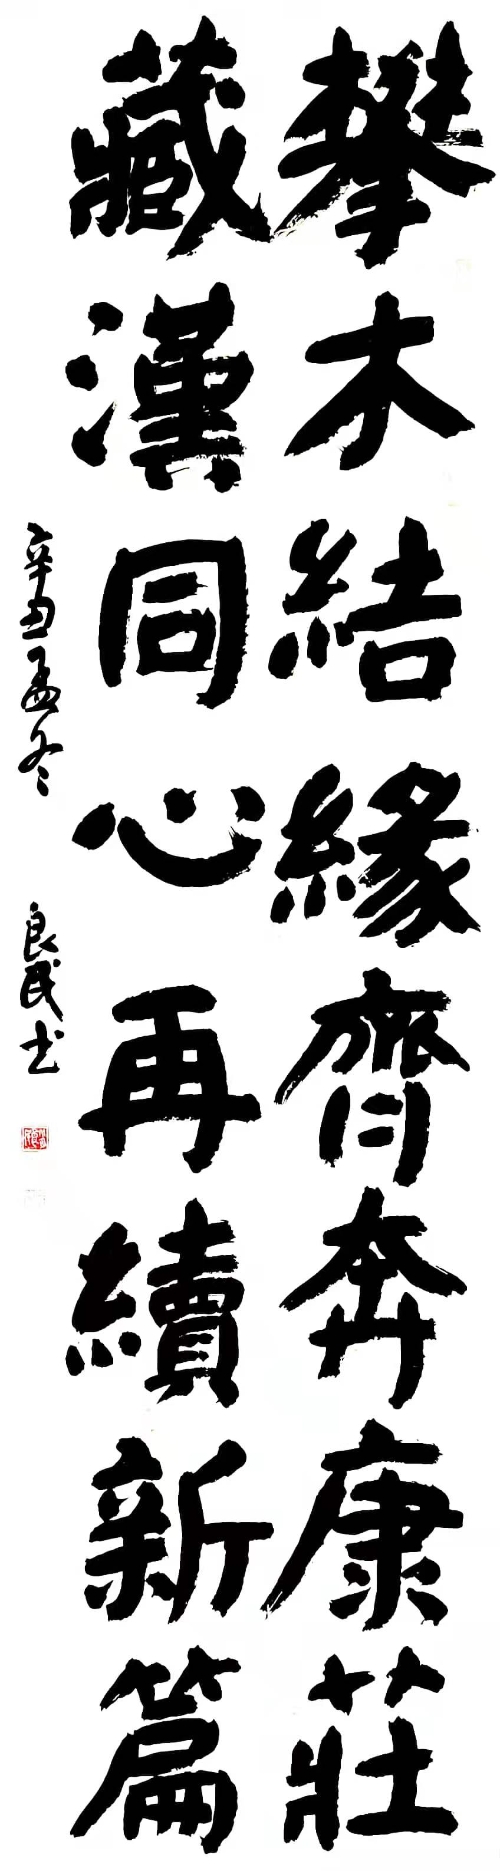 攀木結緣齊奔康莊
藏漢同心再續新篇
辛丑孟冬
良民书